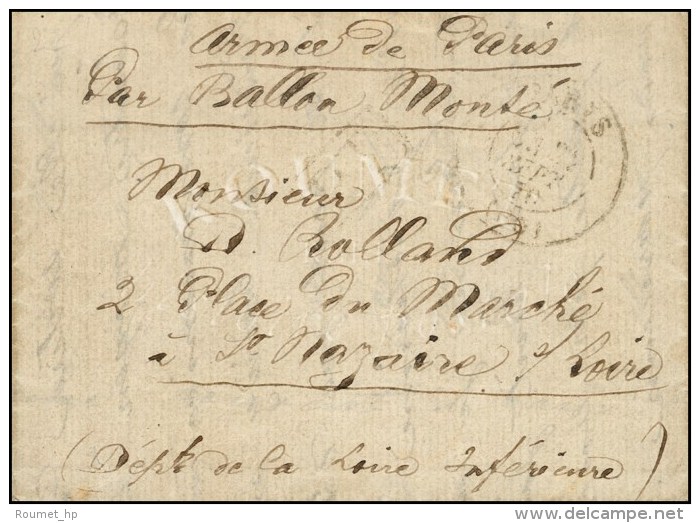 Armée de Paris
Par Ballon Monté
PARIS
Monsieur
D. Rolland
2 Place du Marché
à St. Nazaire s/ Loire
(Dépt. de la Loire Inférieure)
ROUMET
Roumet_hp
DELCAMPE.NET